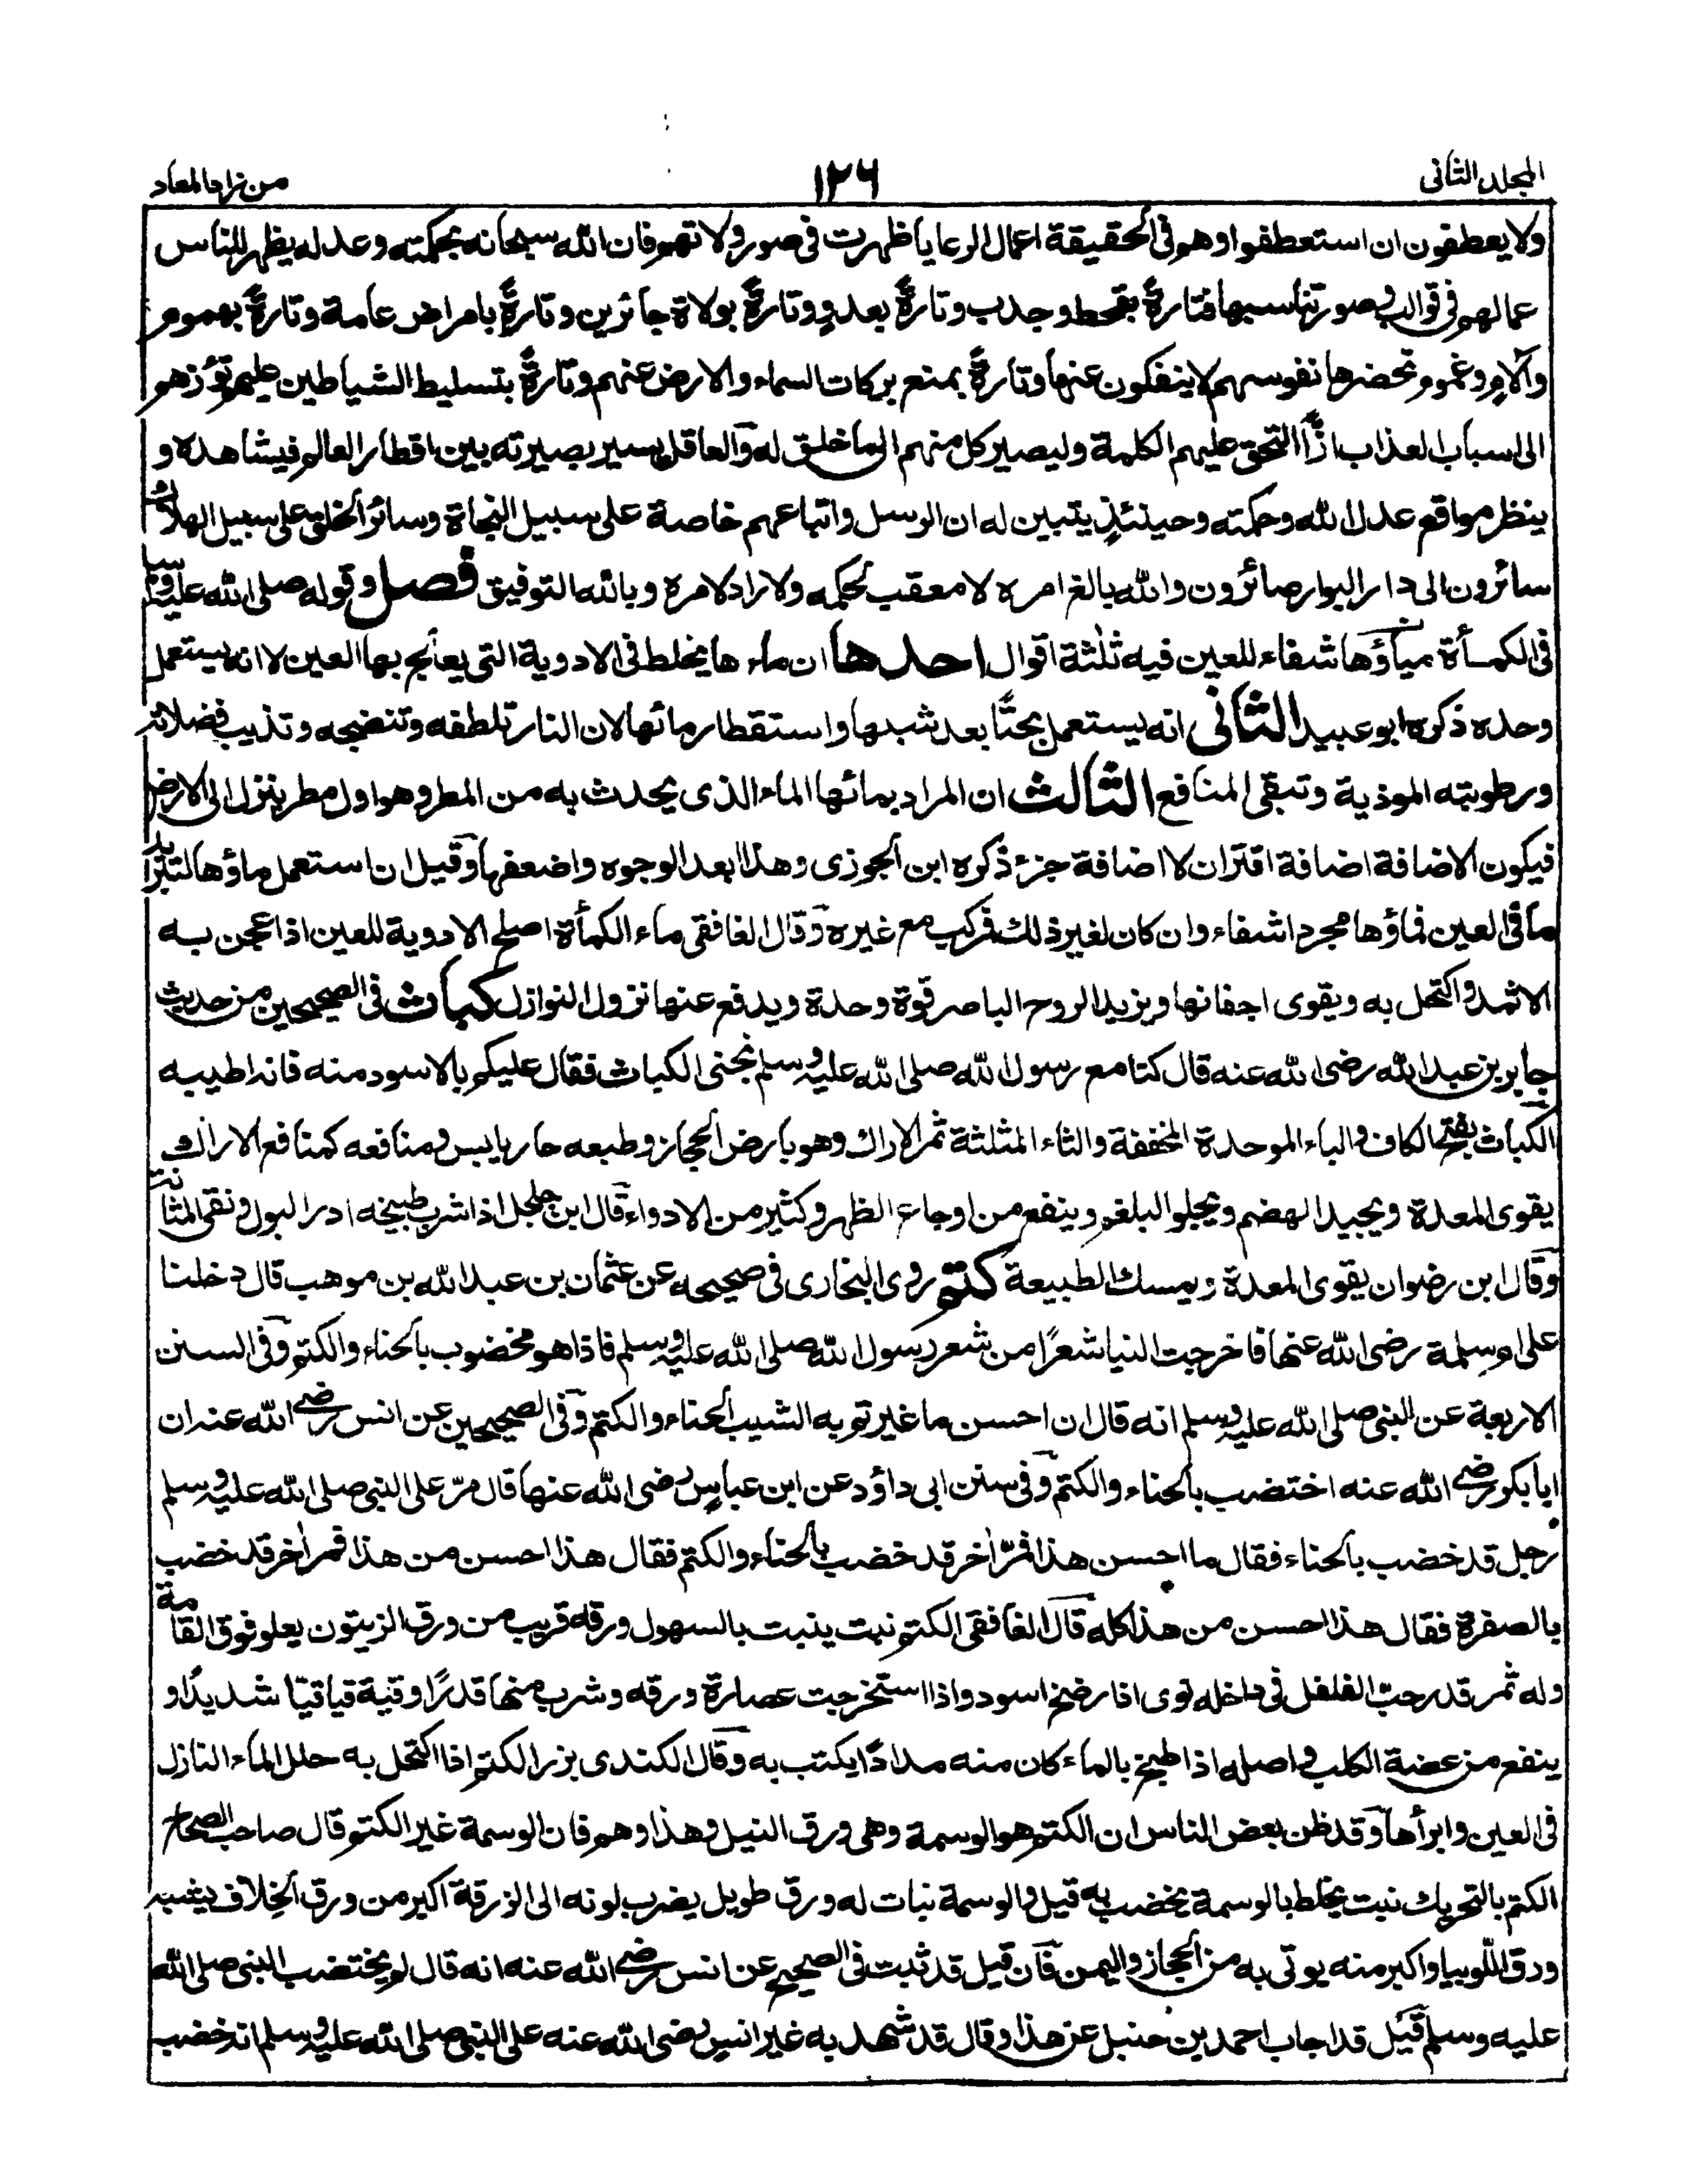 المجلد الثانى
١٢٦
من زاد المعاد
ولا يعطفون ان استعطفوا وهو فى الحقيقة اعمال الرعايا ظهرت فى صور ولاتهم فان الله سبحانه بحكمته وعدله يظهر للناس
عمالهم فى قوالب وصور تناسبها فتارةً بقحط وجدب وتارةً بعدو وتارةً بولاة جائرين وتارةً بامراض عامة وتارةً بهموم
وآلام وغموم تحضرها نفوسهم لا ينفكون عنها وتارةً بمنع بركات السماء والارض عنهم وتارةً بتسليط الشياطين عليهم تؤزهم
الى اسباب العذاب ازًّا لتحق عليهم الكلمة وليصير كل منهم الى ما خلق له والعاقل يسير بصيرته بين اقطار العالم فيشاهده و
ينظر مواقع عدل الله وحكمته وحينئذٍ يتبين له ان الرسل واتباعهم خاصة على سبيل النجاة وسائر الخلق على سبيل الهلاك
سائرون الى دار البوار صائرون والله بالغ امره لا معقب لحكمه ولا راد لامره وبالله التوفيق فصل وقوله صلى الله عليه وسلم
فى الكمأة وماؤها شفاء للعين فيه ثلثة اقوال احدها ان ماءها يخلط فى الادوية التى يعالج بها العين لا انه يستعمل
وحده ذكره ابو عبيد الثانى انه يستعمل بحتًا بعد شيها واستقطار مائها لان النار تلطفه وتنضجه وتذيب فضلاته
ورطوبته الموذية وتبقى المنافع الثالث ان المراد بمائها الماء الذى يحدث به من المطر وهو اول مطر ينزل الى الارض
فيكون الاضافة اضافة اقتران لا اضافة جزء ذكره ابن الجوزى وهذا ابعد الوجوه واضعفها وقيل ان استعمل ماؤها لتبريد
ما فى العين فماؤها مجردا شفاء وان كان لغير ذلك فمركب مع غيره وقال الغافقى ماء الكمأة اصلح الادوية للعين اذا عجن به
الاثمد واكتحل به ويقوى اجفانها ويزيد الروح الباصر قوة وحدة ويدفع عنها نزول النوازل كباث فى الصحيحين من حديث
جابر بن عبد الله رضى الله عنه قال كنا مع رسول الله صلى الله عليه وسلم نجنى الكباث فقال عليكم بالاسود منه فانه اطيبه
الكباث بفتح الكاف والباء الموحدة المخففة والثاء المثلثة ثمر الاراك وهو بارض الحجاز وطبعه حار يابس ومنافعه كمنافع الاراك
يقوى المعدة ويجيد الهضم ويجلو البلغم وينفع من اوجاع الظهر وكثير من الادواء قال ابن جلجل اذا شرب طبيخه ادر البول ونقى المثانة
وقال ابن رضوان يقوى المعدة ويمسك الطبيعة كتم روى البخارى فى صحيحه عن عثمان بن عبد الله بن موهب قال دخلنا
على ام سلمة رضى الله عنها فاخرجت الينا شعرًا من شعر رسول الله صلى الله عليه وسلم فاذا هو مخضوب بالحناء والكتم وفى السنن
الاربعة عن النبى صلى الله عليه وسلم انه قال ان احسن ما غيرتم به الشيب الحناء والكتم وفى الصحيحين عن انس رضى الله عنه ان
ابا بكر رضى الله عنه اختضب بالحناء والكتم وفى سنن ابى داؤد عن ابن عباس رضى الله عنهما قال مرّ على النبى صلى الله عليه وسلم
رجل قد خضب بالحناء فقال ما احسن هذا فمرّ اخر قد خضب بالحناء والكتم فقال هذا احسن من هذا فمر اخر قد خضب
بالصفرة فقال هذا احسن من هذا كله قال الغافقى الكتم نبت ينبت بالسهول ورقه قريب من ورق الزيتون يعلو فوق القامة
وله ثمر قدر حب الفلفل فى داخله نوى اذا رضخ اسود واذا استخرجت عصارة ورقه وشرب منها قدر اوقية قيا قيًا شديدًا و
ينفع من عضة الكلب واصله اذا طبخ بالماء كان منه مدادًا يكتب به وقال الكندى بزر الكتم اذا اكتحل به حلل الماء النازل
فى العين وابرأها وقد ظن بعض الناس ان الكتم هو الوسمة وهى ورق النيل وهذا وهم فان الوسمة غير الكتم قال صاحب الصحاح
الكتم بالتحريك نبت يخلط بالوسمة يخضب به قيل والوسمة نبات له ورق طويل يضرب لونه الى الزرقة اكبر من ورق الخلاف يشبه
ورق اللوبيا واكبر منه يوتى به من الحجاز واليمن فان قيل قد ثبت فى الصحيح عن انس رضى الله عنه انه قال لم يختضب النبى صلى الله
عليه وسلم قيل قد اجاب احمد بن حنبل عن هذا وقال قد شهد به غير انس رضى الله عنه على النبى صلى الله عليه وسلم انه خضب